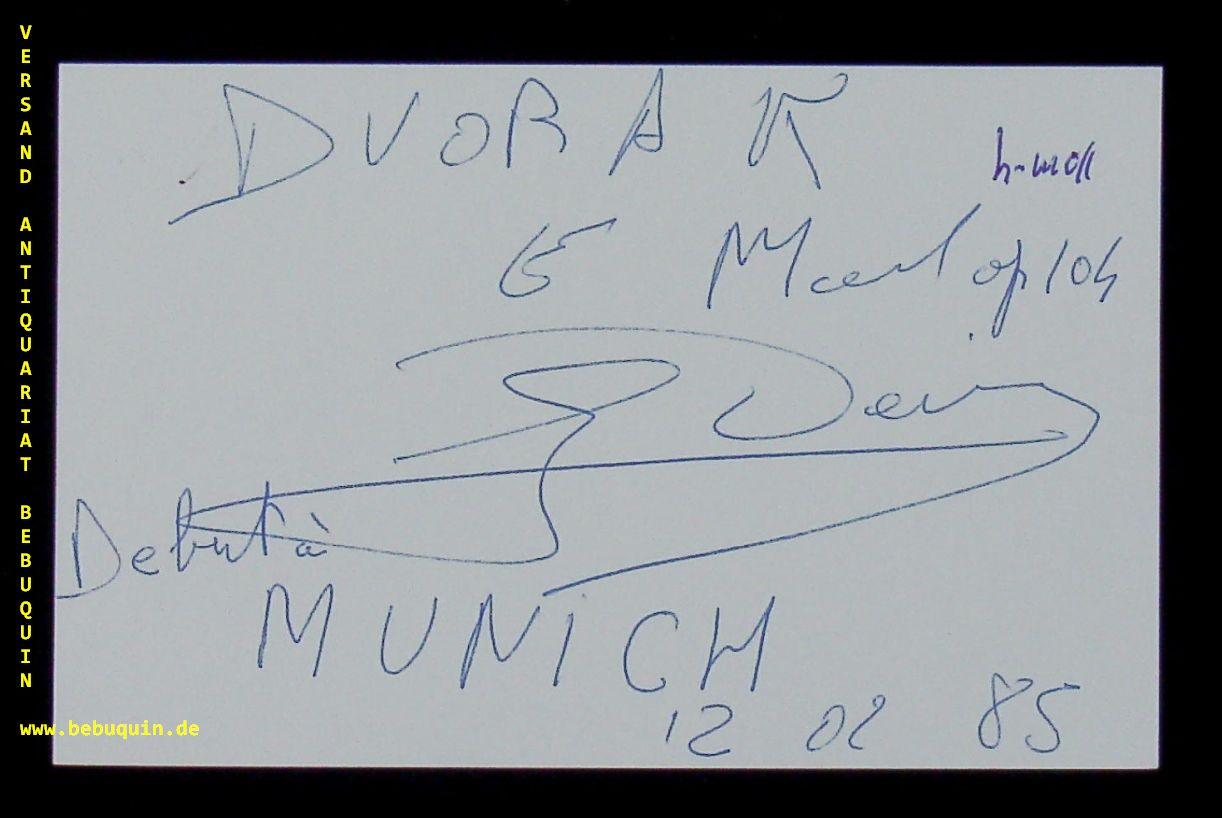 VERSAND ANTIQUARIAT BEBUQUIN
www.bebuquin.de
DVORAK
h-moll
op 104
Debut à
MUNICH
12 02 85